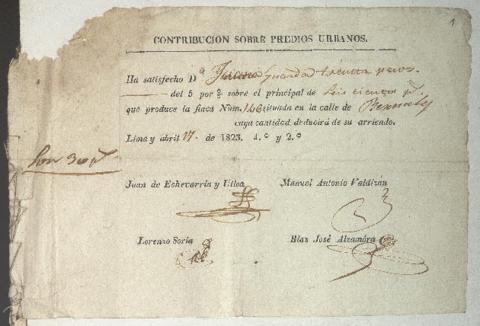 1
CONTRIBUCION SOBRE PREDIOS URBANOS.
Ha satisfecho Dª treinta pesos
del 5 por % sobre el principal de Seis cientos p.s
que produce la finca Núm. 146 situada en la calle de
cuya cantidad deducirá de su arriendo.
Lima y abril 17. de 1823. 1.º y 2.º
Son 30 p.s
Juan de Echevarría y Ulloa Manuel Antonio Valdizán
Lorenzo Soria Blas José Alzamora